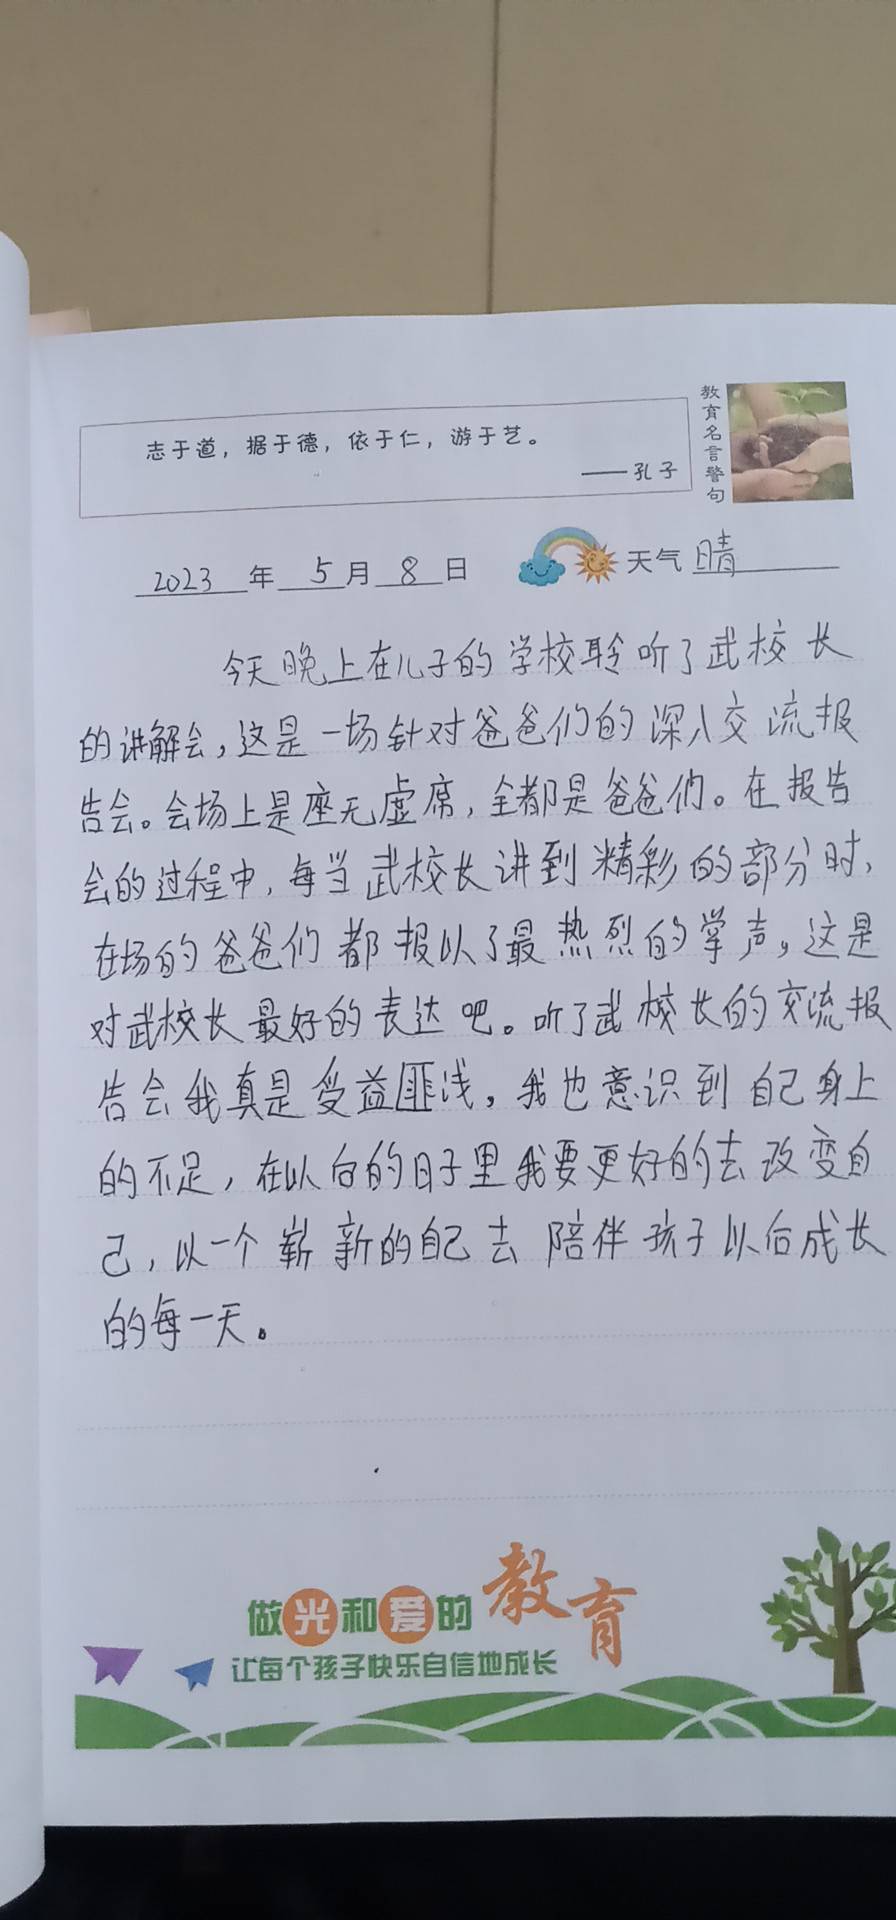 志于道，据于德，依于仁，游于艺。
——孔子
教育名言警句
2023年5月8日 天气 晴
今天晚上在儿子的学校聆听了武校长
的讲解会，这是一场针对爸爸们的深入交流报
告会。会场上是座无虚席，全都是爸爸们。在报告
会的过程中，每当武校长讲到精彩的部分时，
在场的爸爸们都报以了最热烈的掌声，这是
对武校长最好的表达吧。听了武校长的交流报
告会我真是受益匪浅，我也意识到自己身上
的不足，在以后的日子里我要更好的去改变自
己，以一个崭新的自己去陪伴孩子以后成长
的每一天。
做光和爱的教育
让每个孩子快乐自信地成长